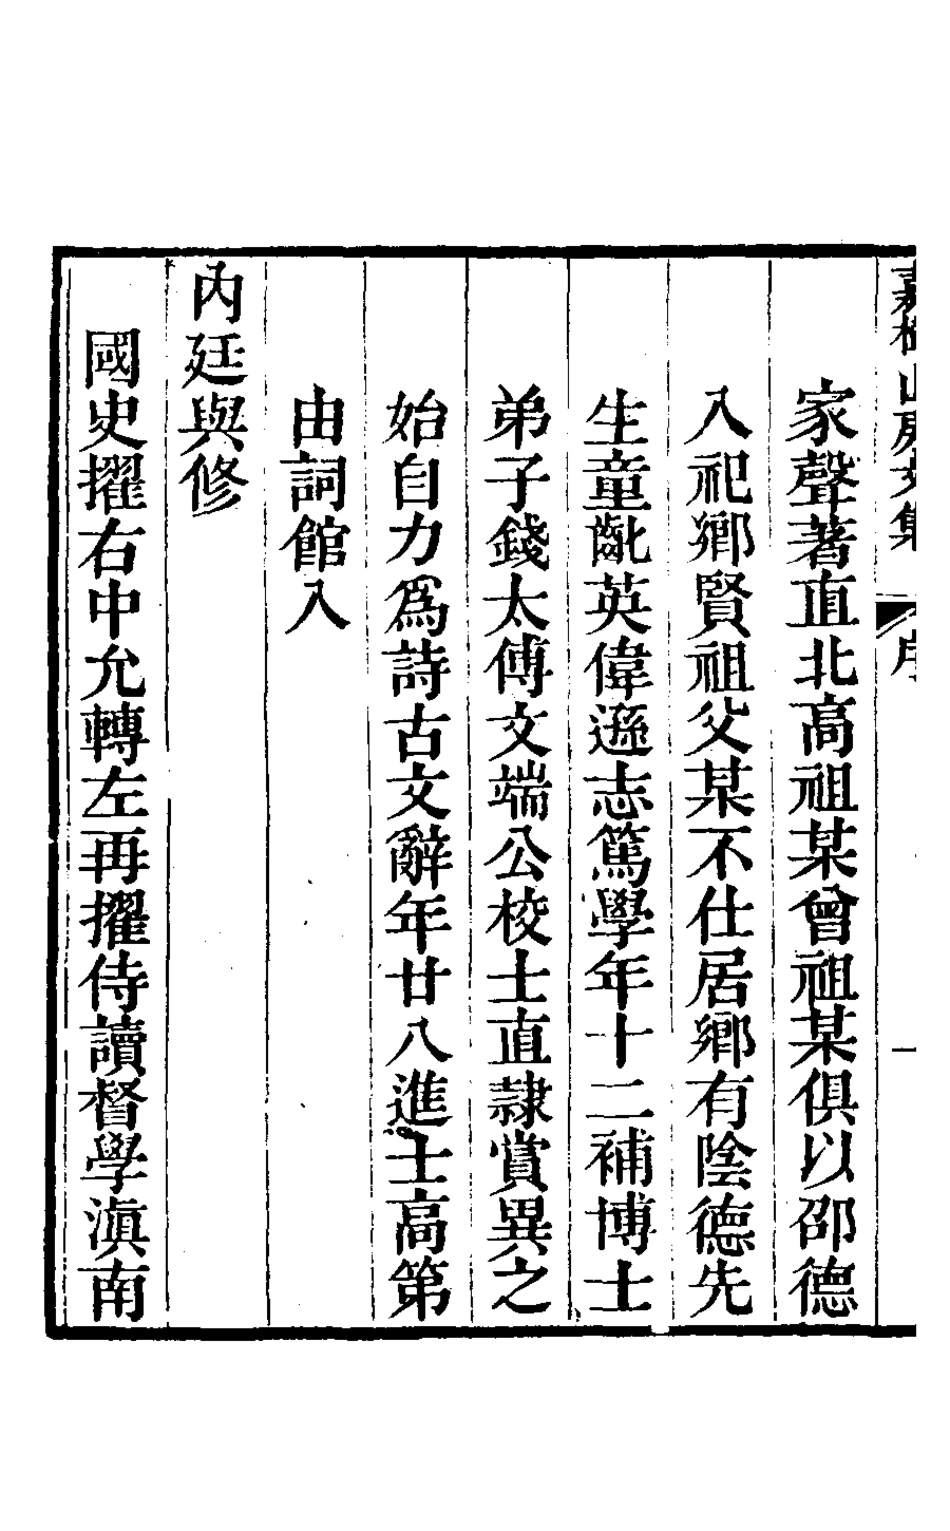 嘉樹山房文集
序
一
家聲著直北高祖某曾祖某俱以邵德
入祀鄉賢祖父某不仕居鄉有陰德先
生童齔英偉遜志篤學年十二補博士
弟子錢太傅文端公校士直隸賞異之
始自力爲詩古文辭年廿八進士高第
由詞館入
內廷與修
國史擢右中允轉左再擢侍讀督學滇南